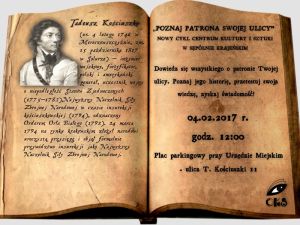 Tadeusz Kościuszko
(ur. 4 lutego 1746 w
Mereczowszczyźnie, zm.
15 października 1817
w Solurze) – inżynier
wojskowy, fortyfikator,
polski i amerykański
generał, uczestnik wojny
o niepodległość Stanów Zjednoczonych
(1775–1783) Najwyższy Naczelnik Siły
Zbrojnej Narodowej w czasie insurekcji
kościuszkowskiej (1794), odznaczony
Orderem Orła Białego (1792). 24 marca
1794 na rynku krakowskim złożył narodowi
uroczystą przysięgę i objął formalnie
przywództwo insurekcji jako Najwyższy
Naczelnik Siły Zbrojnej Narodowej.
„POZNAJ PATRONA SWOJEJ ULICY"
NOWY CYKL CENTRUM KULTURY I SZTUKI
W SĘPÓLNIE KRAJEŃSKIM
Dowiedz się wszystkiego o patronie Twojej
ulicy. Poznaj jego historię, przetestuj swoją
wiedzę, zyskaj świadomość!
04.02.2017 r.
godz. 12:00
Plac parkingowy przy Urzędzie Miejskim
- ulica T. Kościuszki 11
CKiS